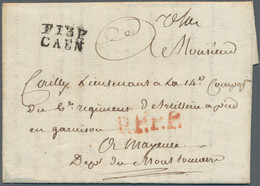 P13P
CAEN
Monsieur
Cailly Lieutenant a la 14e Compagnie
du 6e regiment d'Artillerie a pied
en garnison
P.P.P.P.
a Mayence
Dept du Mont tonnerre